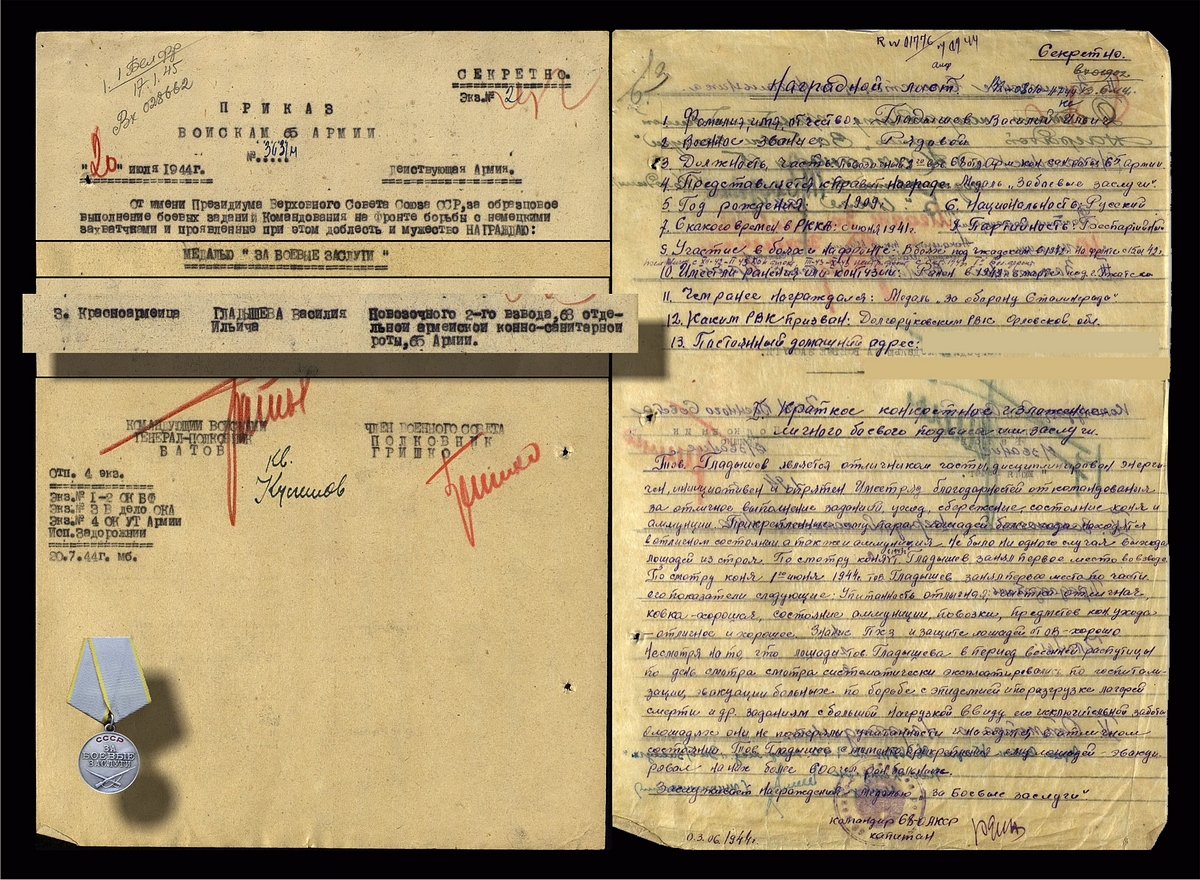 1. 1 Бел фр
17.1.45
Вх 028662
СЕКРЕТНО.
Экз.№ 2
ПРИКАЗ
ВОЙСКАМ 65 АРМИИ
№ 363/н
"20" июля 1944г. Действующая Армия.
От имени Президиума Верховного Совета Союза ССР, за образцовое
выполнение боевых заданий Командования на Фронте борьбы с немецкими
захватчиками и проявленные при этом доблесть и мужество НАГРАЖДАЮ:
МЕДАЛЬЮ " ЗА БОЕВЫЕ ЗАСЛУГИ "
3. Красноармейца ГЛАДЫШЕВА Василия Ильича Повозочного 2-го взвода, 68 отдельной армейской конно-санитарной роты, 65 Армии.
КОМАНДУЮЩИЙ ВОЙСКАМИ
ГЕНЕРАЛ-ПОЛКОВНИК
БАТОВ
ЧЛЕН ВОЕННОГО СОВЕТА
ПОЛКОВНИК
ГРИШКО
Отп. 4 экз.
Экз.№ 1-2 ОК БФ
Экз.№ 3 В дело ОКА
Экз.№ 4 ОК УТ Армии
Исп. Задорожний
20.7.44г. мб.
СССР
ЗА
БОЕВЫЕ
ЗАСЛУГИ
Секретно.
Наградной лист
1. Фамилия, имя, отчество: Гладышев Василий Ильич
2. Военное звание: Рядовой
3. Должность, часть
4. Представляется к правит. награде: Медаль „За боевые заслуги"
5. Год рождения: 1909. 6. Национальность: Русский
7. С какого времени в РККА: с июня 1941г. 8. Партийность: Беспартийный
9. Участие в боях
10. Имеет ли ранения или контузии: Ранен в 1942 в марте под г.
11. Чем ранее награждался: Медаль „за оборону Сталинграда"
12. Каким РВК призван: Долгоруковским РВК Орловской обл.
13. Постоянный домашний адрес:
Краткое конкретное изложение
личного боевого подвига или заслуги.
Тов. Гладышев является отличником части, дисциплинирован энерги-
чен, инициативен и опрятен. Имеет ряд благодарностей от командования
за отличное выполнение заданий, уход, сбережение, состояние коня и
аммуниции. Прикрепленные ему пара лошадей более года находятся
в отличном состоянии а также аммуниция. Не было ни одного случая выхода
лошадей из строя. По смотру коня т. Гладышев занял первое место во взводе.
По смотру коня 1го июня 1944г. тов Гладышев, занял первое место по части
его показатели следующие: Упитанность отличная, чистка отличная,
ковка - хорошая, состояние аммуниции, повозки, предметов кон. ухода
- отличное и хорошее. Знание ПХЗ и защита лошадей от ОВ - хорошо
Несмотря на то, что лошади тов. Гладышева в период весенней распутицы
по день смотра смотра систематически эксплоатировались по госпитали-
зации, эвакуации больных по борьбе с эпидемией и по разгрузке лагерей
смерти и др. заданиям с большой нагрузкой ввиду его исключительной заботы
о лошадях они не потеряли упитанности и находятся в отличном
состоянии. Тов. Гладышев с момента прикрепления ему лошадей - эвакуи-
ровал на них более 600 чел ран. больных.
Заслуживает награждения медалью „за Боевые заслуги"
командир 68 ОАКСР
капитан
03.06.1944г.